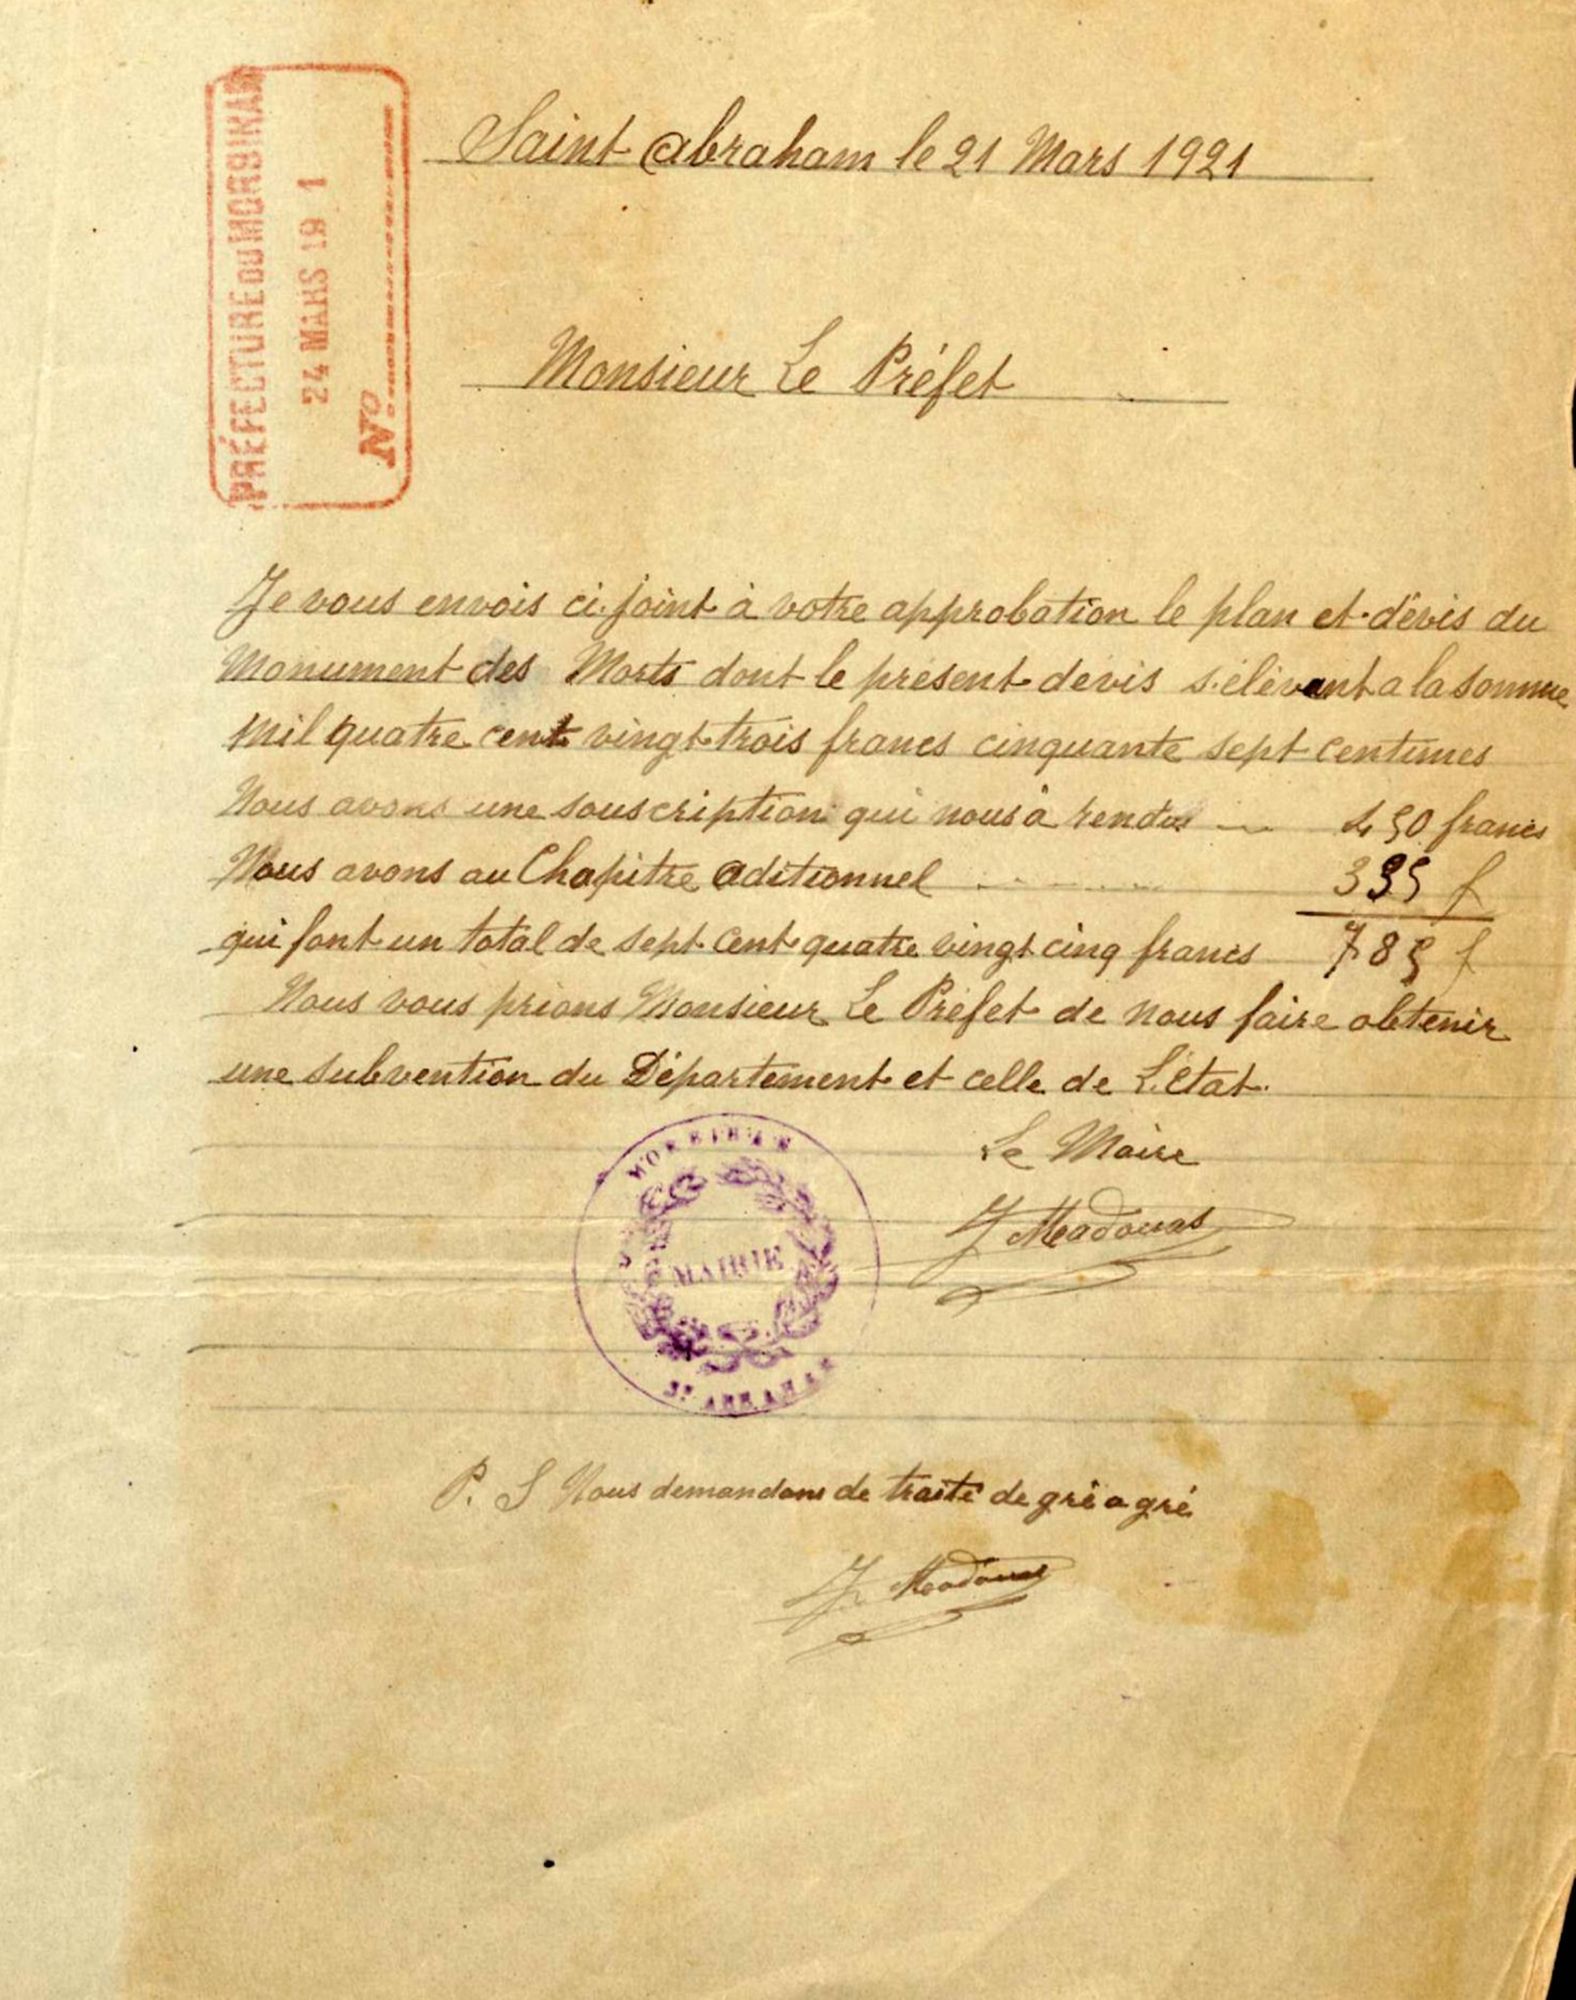 PRÉFECTURE DU MORBIHAN
24 MARS 19 1
No
Saint Abraham le 21 Mars 1921
Monsieur Le Préfet
Je vous envois ci-joint à votre approbation le plan et dévis du
Monument des Morts dont le présent devis s'élévant a la somme
Mil quatre cent vingt trois francs cinquante sept centimes
Nous avons une souscription qui nous à rendus 450 francs
Nous avons au Chapitre aditionnel 335 f
qui font un total de sept cent quatre vingt cinq francs 785 f
Nous vous prions Monsieur Le Préfet de nous faire obtenir
une subvention du Département et celle de L'état.
Le Maire
J Madouas
MORBIHAN
MAIRIE
ST ABRAHAM
P. S Nous demandons de traité de gré a gré
J Madouas